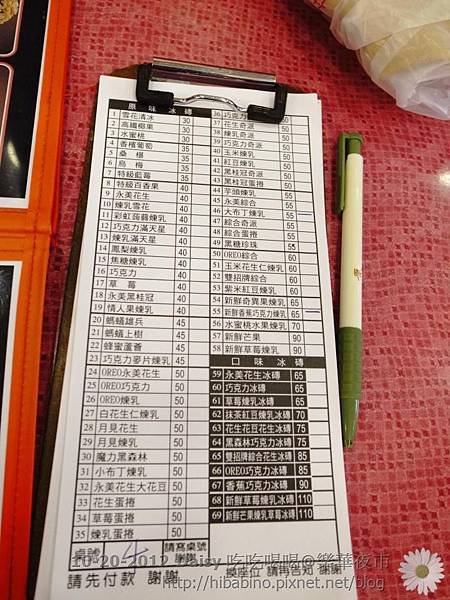 原味冰磚
1 雪花清冰 30
2 高纖椰果 30
3 水蜜桃 30
4 香檳葡萄 35
5 桑椹 35
6 烏梅 35
7 特級藍莓 35
8 特級百香果 40
9 永美花生 40
10 煉乳雪花 40
11 彩虹蒟蒻煉乳 40
12 巧克力滿天星 40
13 煉乳滿天星 40
14 鳳梨煉乳 40
15 焦糖煉乳 40
16 巧克力 40
17 草莓 40
18 永美黑桂冠 40
19 情人果煉乳 40
20 螞蟻雄兵 45
21 螞蟻上樹 45
22 蜂蜜蘆薈 45
23 巧克力麥片煉乳 45
24 OREO永美花生 50
25 OREO巧克力 50
26 OREO煉乳 50
27 白花生仁煉乳 50
28 月見花生 50
29 月見煉乳 50
30 魔力黑森林 50
31 小布丁煉乳 50
32 永美花生大花豆 50
33 花生蛋捲 50
34 草莓蛋捲 50
35 煉乳蛋捲 50
36 巧克力
37 花生奇派 50
38 煉乳奇派 50
39 巧克奇派 50
40 玉米煉乳 50
41 紅豆煉乳 50
42 黑桂冠奇派 50
43 黑桂冠蛋捲 50
44 芋頭煉乳 55
45 永美綜合 55
46 大布丁煉乳 55
47 綜合奇派 55
48 綜合蛋捲 55
49 黑糖珍珠 55
50 OREO綜合 60
51 玉米花生仁煉乳 60
52 雙招牌綜合 60
53 紫米紅豆煉乳 60
54 新鮮奇異果煉乳 65
55 新鮮香蕉巧克力煉乳 65
56 水蜜桃水果煉乳 70
57 新鮮芒果 90
58 新鮮草莓煉乳 90
口味冰磚
59 永美花生冰磚 65
60 巧克力冰磚 65
61 草莓煉乳冰磚 65
62 抹茶紅豆煉乳冰磚 70
63 花生花豆花生冰磚 75
64 黑森林巧克力冰磚 75
65 雙招牌綜合花生冰磚 85
66 OREO巧克力冰磚 85
67 香蕉巧克力冰磚 90
68 新鮮草莓煉乳冰磚 110
69 新鮮芒果煉乳草莓冰磚 110
桌號 請寫桌號 謝謝
請先付款 謝謝 換座位 請再告知 謝謝
10-20-2012 Daisy 吃吃喝喝@樂華夜市
http://hibabino.pixnet.net/blog